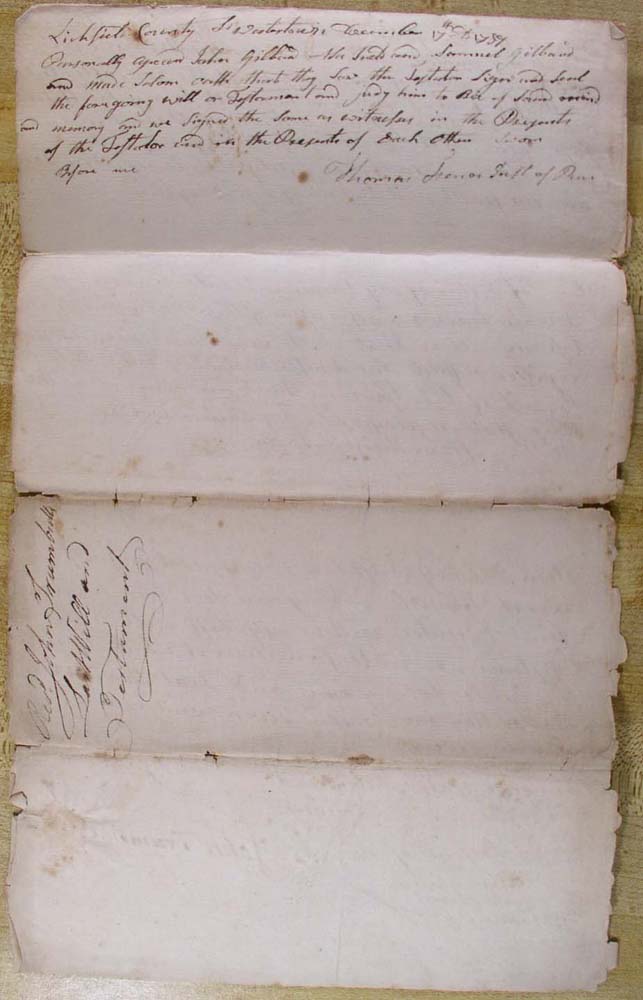 Lichfield County Ss Watertown December 7th AD 1787
Personally apeard John Gilbud Noe and Samuel Gilbaud
and made Solom oath that they Saw the Testator Sign and Seal
the foregoing will or Testament and judg him to Bee of Sound mind
and memory and we Signed the Same as witnesses in the Presents
of the Testator and in the Presents of Each Other Sworn
Before me
Thomas Just of Peac
Revd John Trumbulls
Last Will and
Testament